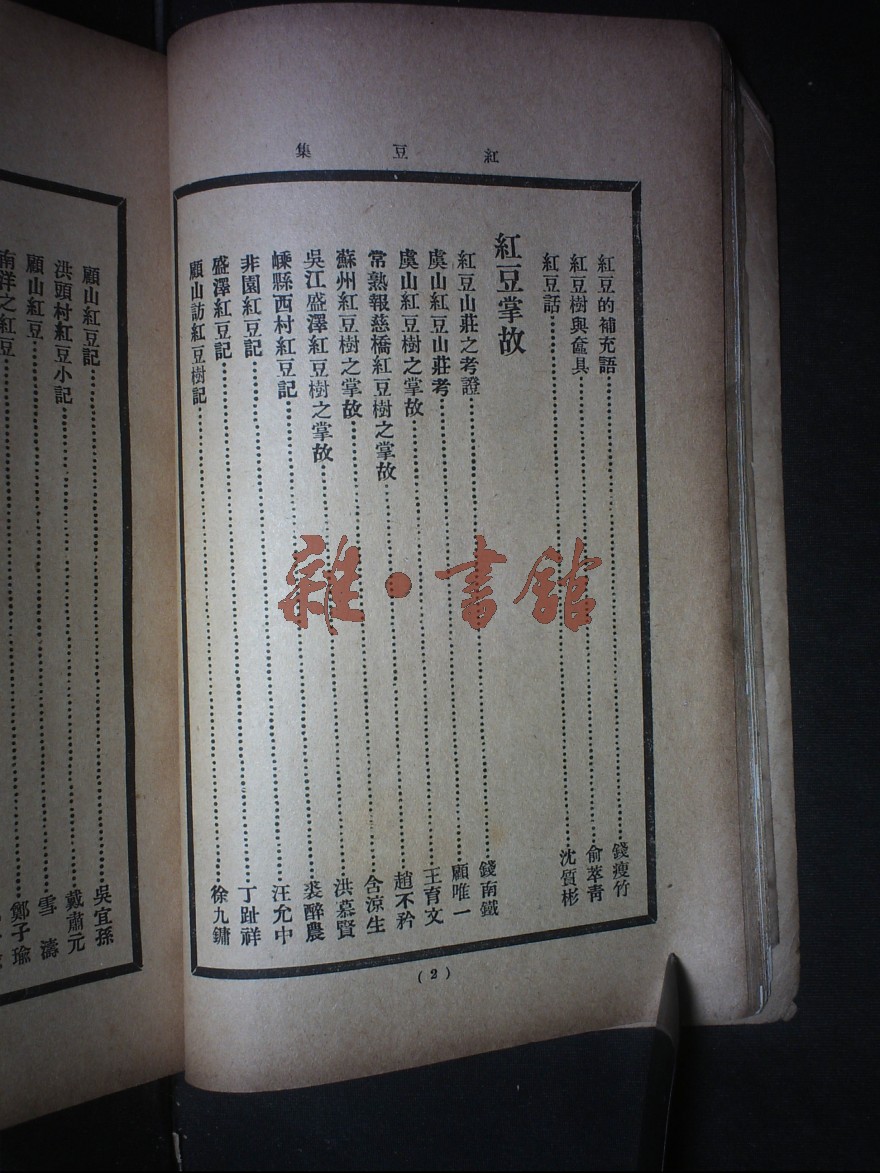 紅豆集
紅豆的補充語……錢瘦竹
紅豆樹與奩具……俞萃青
紅豆話……沈質彬
紅豆掌故
紅豆山莊之考證……錢南鐵
虞山紅豆山莊考……顧唯一
虞山紅豆樹之掌故……王育文
常熟報慈橋紅豆樹之掌故……趙不矜
蘇州紅豆樹之掌故……含涼生
吳江盛澤紅豆樹之掌故……洪慕賢
嵊縣西村紅豆記……裘醉農
非園紅豆記……汪允中
盛澤紅豆記……丁趾祥
顧山訪紅豆樹記……徐九鏞
(2)
顧山紅豆記……吳宜孫
洪頭村紅豆小記……戴肅元
顧山紅豆……雪濤
南洋之紅豆……鄭子瑜
雜·書館